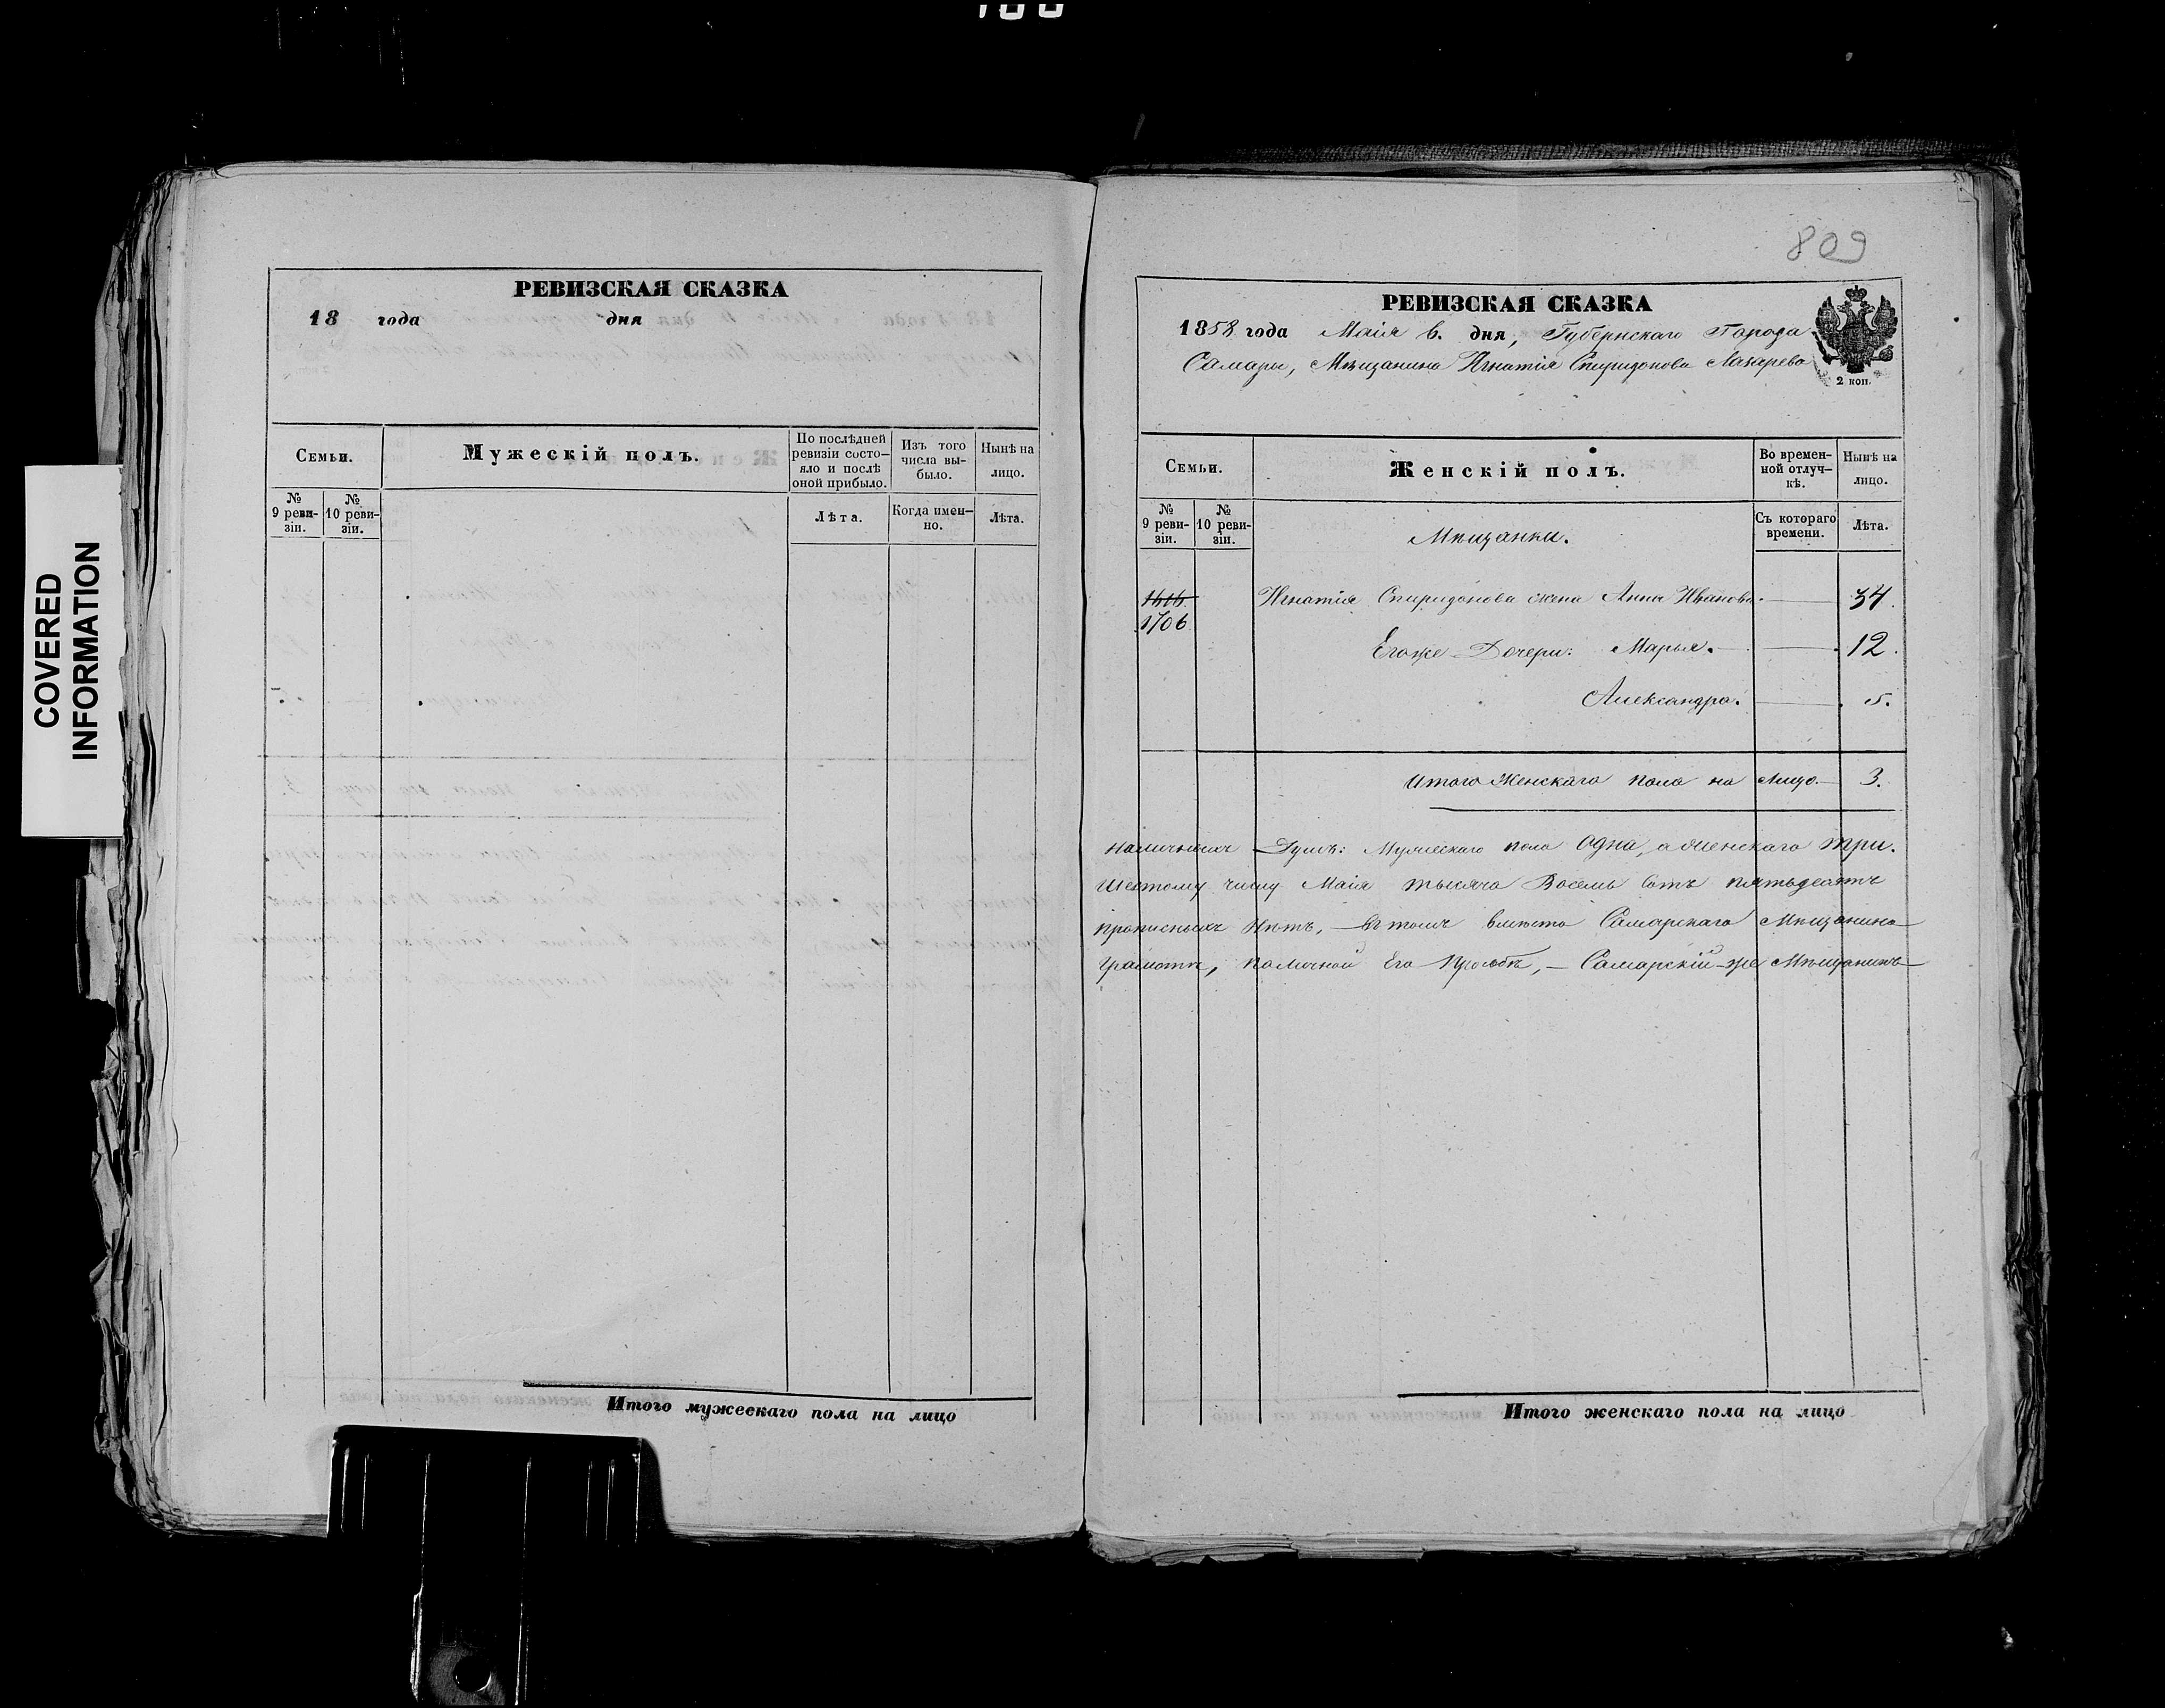 COVERED
INFORMATION
РЕВИЗСКАЯ СКАЗКА
18 года дня
Семьи.
Мужескій полъ.
По послѣдней ревизіи состо-яло и послѣ оной прибыло.
Изъ того числа вы-было.
Нынѣ на лицо.
№ 9 реви-зіи.
№ 10 реви-зіи.
Лѣта.
Когда имен-но.
Лѣта.
Итого мужескаго пола на лицо
809
РЕВИЗСКАЯ СКАЗКА
1858 года Маія 6. дня, Губернскаго Города
Самары, Мѣщанина Игнатія Спиридонова Лазарева
2 коп.
Семьи.
Женскій полъ.
Во времен-ной отлуч-кѣ.
Нынѣ на лицо.
№ 9 реви-зіи.
№ 10 реви-зіи.
Съ котораго времени.
Лѣта.
Мѣщанки.
1616 Игнатія Спиридонова жена Анна Иванова. 34.
1706
Его же Дочери: Марья. 12.
Александра. 5.
Итого Женскаго пола на лицо. 3.
наличныхъ Душъ: Мужескаго пола Одна, а женскаго три.
Шестому числу Маія тысяча Восемь Сотъ пятьдесятъ
прописныхъ Нѣтъ, – въ томъ вмѣсто Самарскаго Мѣщанина
Грамотѣ, По личной Его Прозьбѣ, – Самарскій-же Мѣщанинъ
Итого женскаго пола на лицо